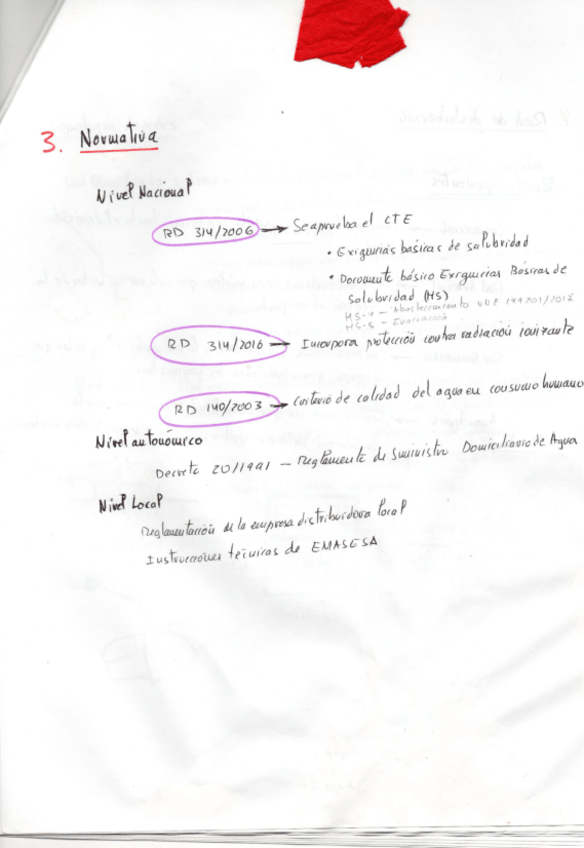 3. Normativa
Nivel Nacional
RD 314/2006 → Se aprueba el CTE
• Exigencias básicas de salubridad
• Documento básico Exigencias Básicas de
salubridad (HS)
HS-4 - Abastecimiento UNE 149201/2017
HS-5 - Evacuación
RD 314/2016 → Incorpora protección contra radiación ionizante
RD 140/2003 → Criterio de calidad del agua en consumo humano
Nivel autonómico
Decreto 20/1991 - Reglamento de Suministro Domiciliario de Agua
Nivel Local
Reglamentación de la empresa distribuidora local
Instrucciones técnicas de EMASESA